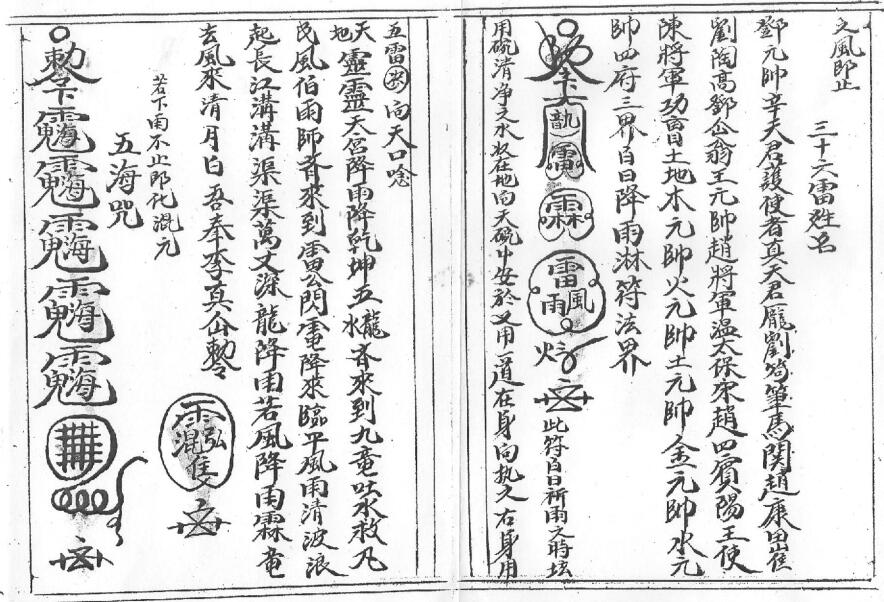 之風即止
三十六雷姓名
鄧元帥辛天君護使者真天君龐劉苟畢馬関趙康田崔
劉陶高鄧仚翁王元帥趙將軍温太保宋趙四賓陽王使
陳將軍功曺土地木元帥火元帥土元帥金元帥水元
帥四府三界白日降雨淋符法界
雷
霖
雷
雨風
此符白日祈雨之時坛
用硫清净之水放在地向天硫中安於又用一道在身向执久右身用
五雷 向天口唸
天地靈靈天宫降雨降乾坤五水龍斉來到九竜吐水救凢
民風伯雨師斉來到雷公閃電降來臨平風雨清波浪
起長江溝溝渠渠萬丈深龍降雨若風降雨霖竜
去風來清月白吾奉李真仚勅令
若下雨不止即化混元
五海咒